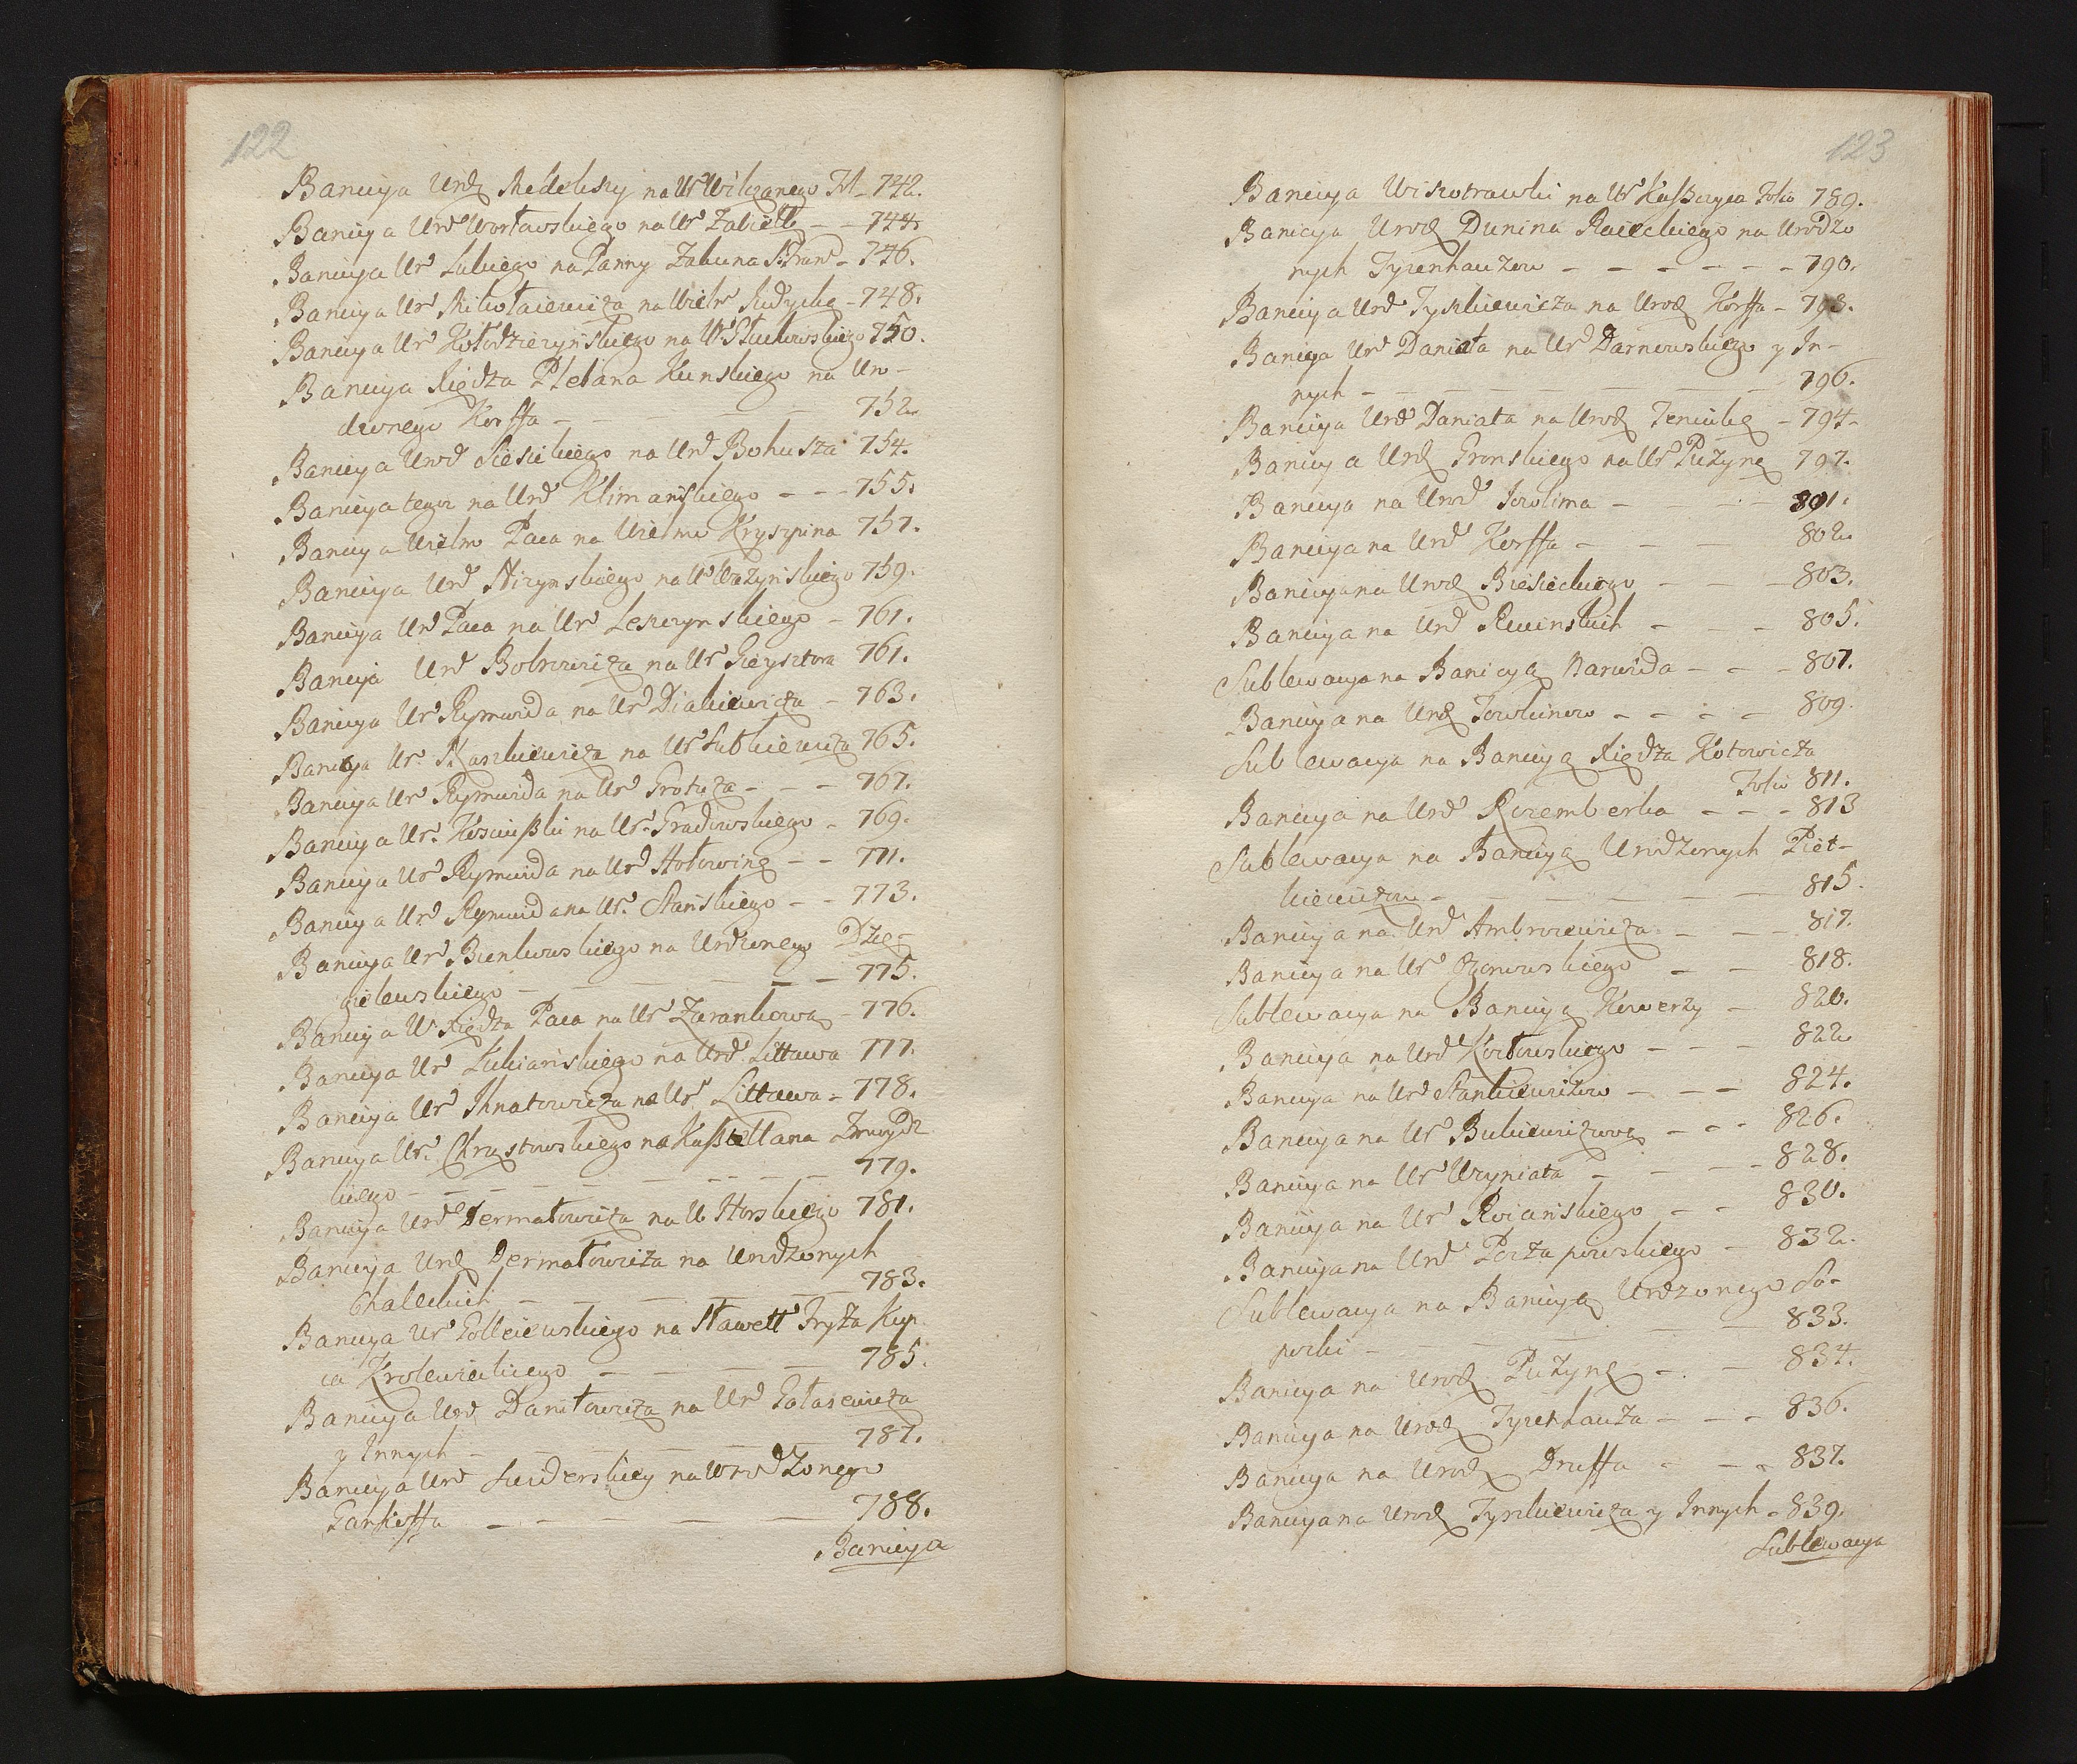 122
Banicya Urd Medekszy na Ur Wilczanego Fol 742.
Banicya Urd Worłowskiego na Ur Zabiełł - - 744.
Banicya Ur Lubiego na Panny Zakuna S. Fran - 746.
Banicya Ur Mikołaiewicza na Wielr Rudyckę - 748.
Banicya Ur Kołodzieynskiego na Ur Stachowskiego 750.
Banicya Xiędza Plebana Kunskiego na Uro-
dzonego Korffa - - - - - 752.
Banicya Urod Siesickiego na Urd Bohusza 754.
Banicya tegoż na Urd Klimańskiego - - - 755.
Banicya Wielm Paca na Wielmo Kryszpina 757.
Banicya Urd Nizynskiego na Ur Wazynskiego 759.
Banicya Urd Paca na Ur Leszczynskiego - 761.
Banicya Urd Bobrowicza na Ur Gieysztora 761.
Banicya Ur Rymwida na Ur Diakiewicza - 763.
Banicya Ur Kaszkiewicza na Ur Lutkiewicza 765.
Banicya Ur Rymwida na Ur Grotuza - - - 767.
Banicya Ur. Kosciußki na Ur. Gradowskiego - 769.
Banicya Ur Rymwida na Urd Hołowinę - - 771.
Banicya Urd Rymwida na Ur. Stańskiego - - 773.
Banicya Ur Bienkowskiego na Urdzonego Dzię-
gielewskiego - - - - - - 775.
Banicya W Xiędza Paca na Ur Zarankową - 776.
Banicya Ur Łukiańskiego na Urd Littawa 777.
Banicya Ur Ihnatowicza na Ur Littawa - 778.
Banicya Ur. Chrząstowskiego na Kaßtellana Zmuydz
kiego - - - - - - - 779.
Banicya Urd Dermatowicza na Ur Horskiego 781.
Banicya Urd Dermatowicza na Urodzonych
Chaleckich - - - - - 783.
Banicya Ur Gołkiewskiego na Sławett Fryza Kup
ca Krolewieckiego - - - - 785.
Banicya Urd Daniłowicza na Urd Gołaszewicza
y Innych - - - - - - 787.
Banicya Urd Swiderskiey na Urodzonego
Gansioffa - - - - - 788.
Banicya
123
Banicya Wiszotrawki na Ur Kaßzyca Folio 789.
Banicya Urod Dunina Raieckiego na Urodzo
nych Tyzenhauzow - - - - - - 790.
Banicya Urd Tyszkiewicza na Urod Korffa - 793.
Banicya Urd Daniała na Ur Darnowskiego y In-
nych - - - - - - 796.
Banicya Urd Daniała na Urod Jeniukę - 794-
Banicya Urd Gronskiego na Ur Puzynę 797.
Banicya na Urod Jarolima - - - 801.
Banicya na Urd Korffa - - - 802.
Banicya na Urod Biesieckiego - - - 803.
Banicya na Urd Kucinskich - - - 805.
Sublewacya na Banicyą Narwida - - - 807.
Banicya na Urd Jowkinow - - - - 809.
Sublewacya na Banicyą Xiędza Kotowicza
Folio 811.
Banicya na Urd Rozemberka - - - 813
Sublewacya na Banicyą Urodzonych Piet-
kiewiczow - - - - - - 815.
Banicya na Urd Ambrozewicza - - - 817.
Banicya na Ur Ozonowskiego - - 818.
Sublewacya na Banicyą Kowerzy - 820.
Banicya na Urd Kozłowskiego - - - 822.
Banicya na Ur Stankiewiczow - - - 824.
Banicya na Ur Bukiewiczową - - - 826.
Banicya na Ur Uzyniata - - - - 828.
Banicya na Ur Roianskiego - - 830.
Banicya na Urd Porzapowskiego - 832.
Sublewacya na Banicyą Urdzonego So-
poćki - - - - - 833.
Banicya na Urod Puzynę - - 834.
Banicya na Urod Tyzenhauza - - - 836.
Banicya na Urod Druffa - - - 837.
Banicya na Urod Tyszkiewicza y Innych - 839.
Sublewacya